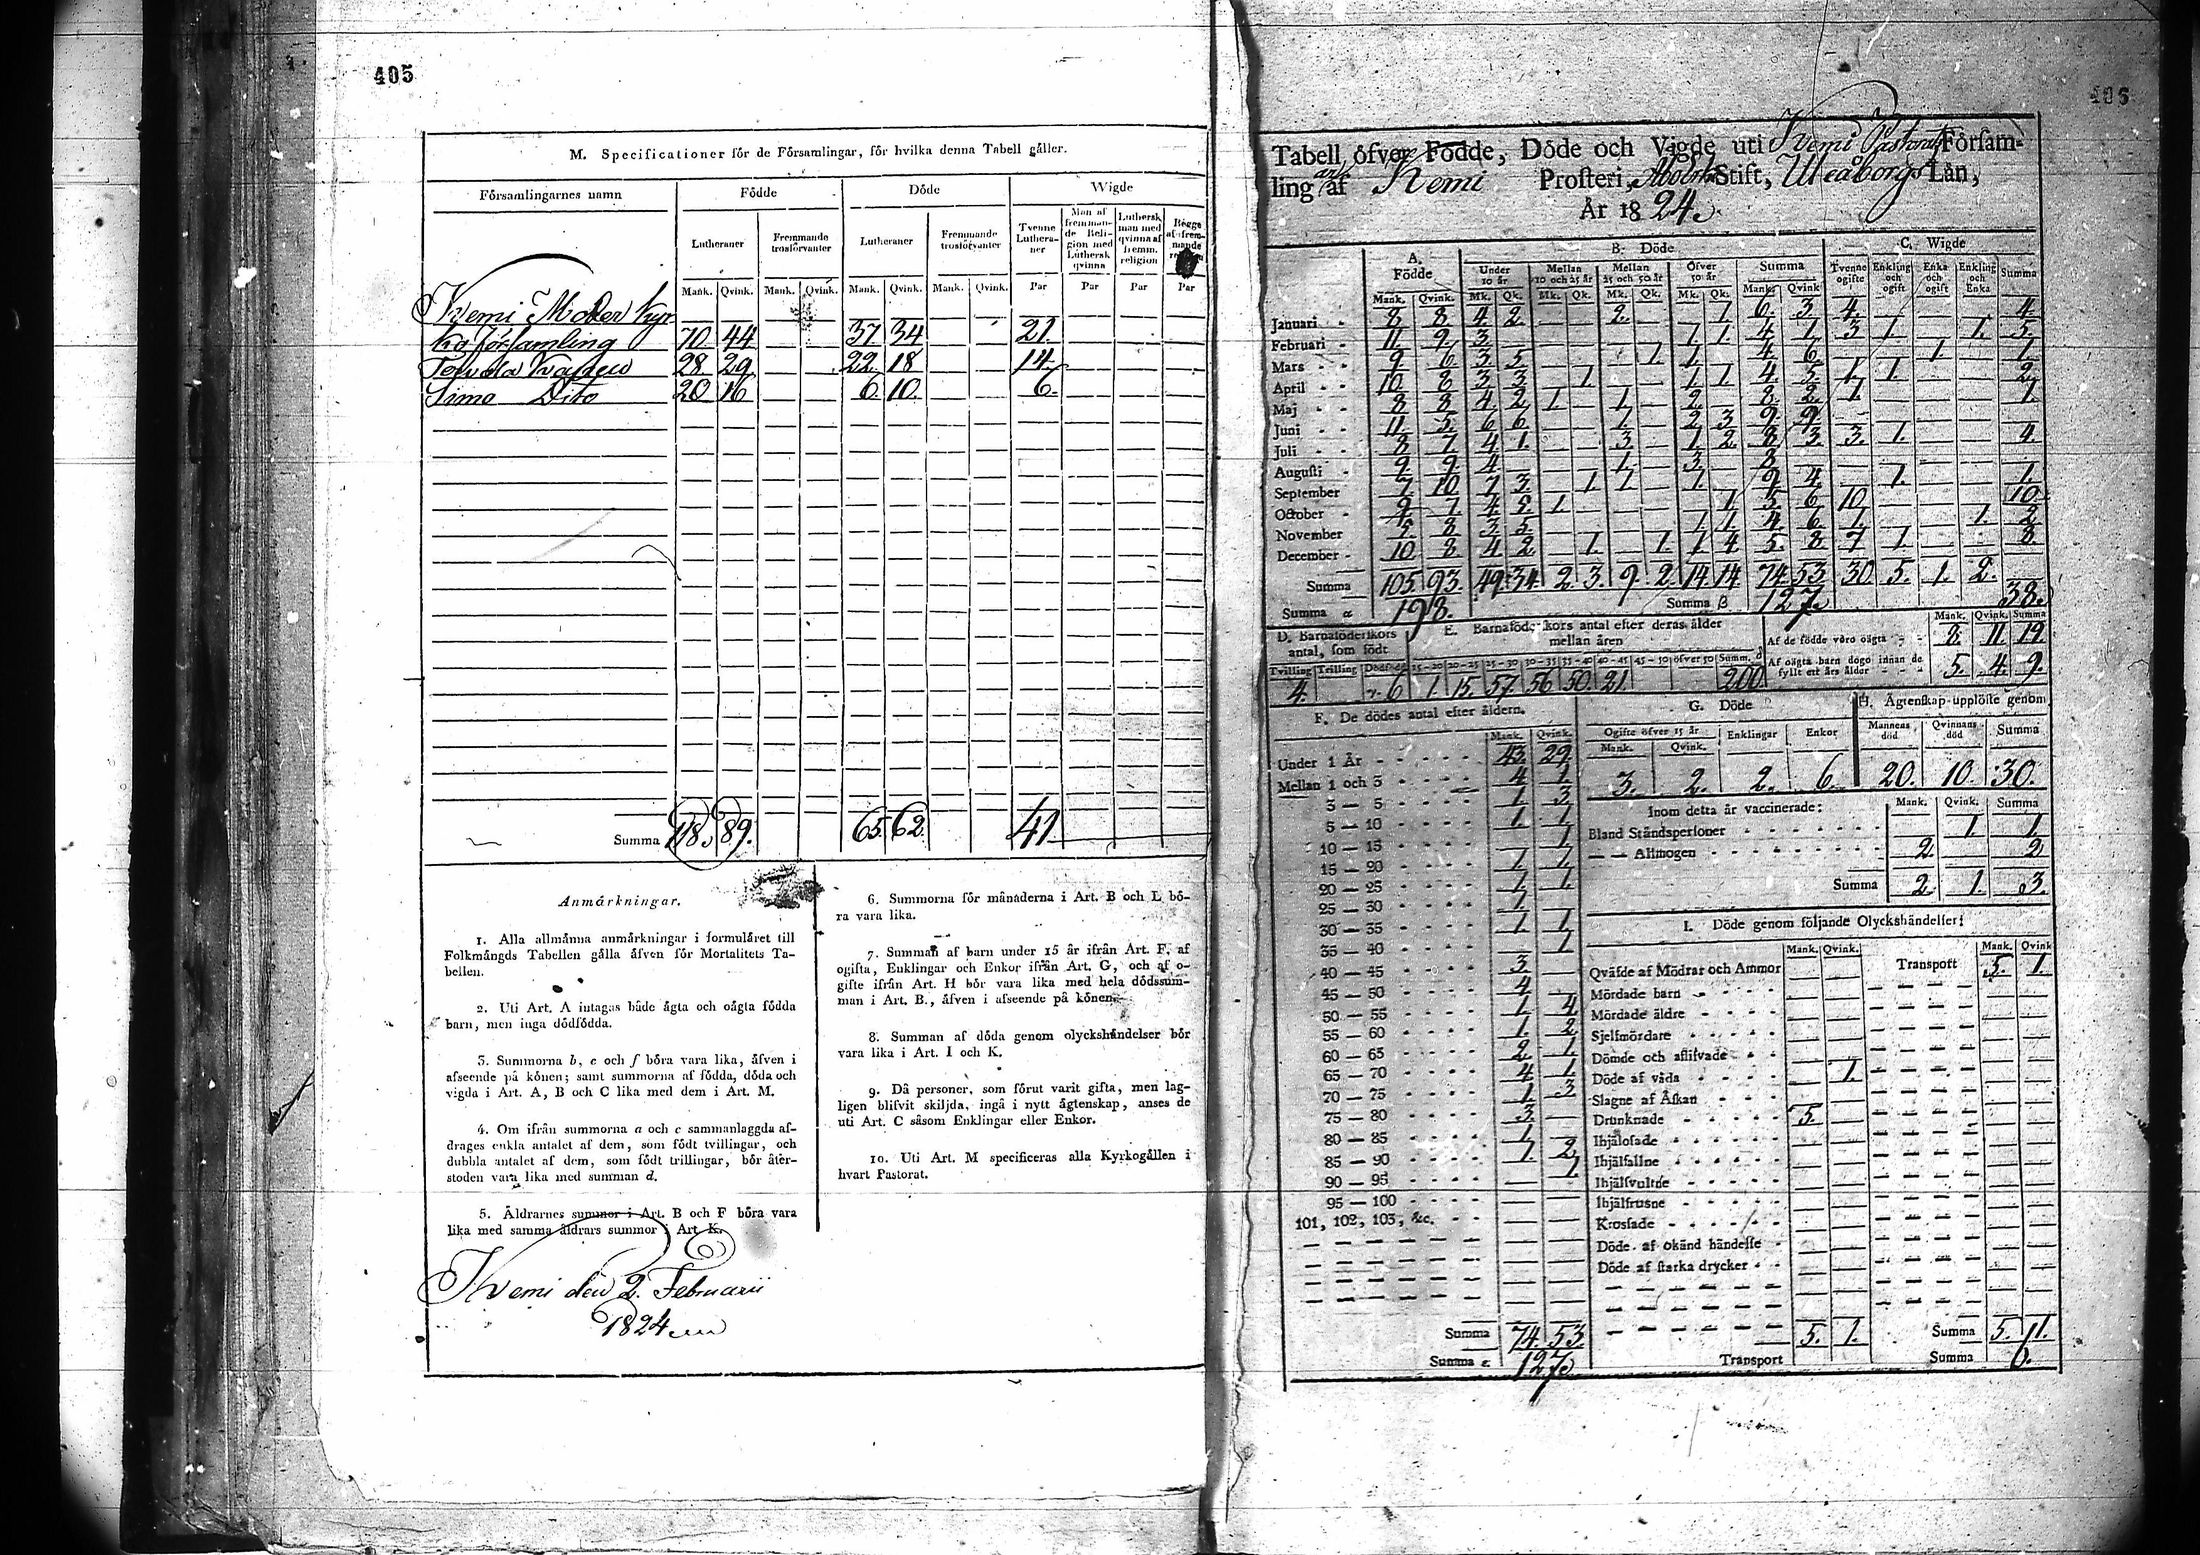 405
M. Specificationer för de Församlingar, för hvilka denna Tabell gäller.
Församlingarnes namn | Födde | Döde | Wigde
Lutheraner | Fremmande trosförvanter | Lutheraner | Fremmande trosförvanter | Tvenne Lutheraner | Man af fremmande Religion med Luthersk qvinna | Luthersk man med qvinna af fremm. religion | Begge af fremmande
Mank. Qvink. Mank. Qvink. Mank. Qvink. Mank. Qvink. Par Par Par Par
Kemi Moder kyr
ko församling 70 44 37. 34 21.
Tervola Capell 28. 29 22. 18 14.
Simo Dito 20 16 6. 10. 6.
Summa 118. 89. 65. 62. 41
Anmärkningar.
1. Alla allmänna anmärkningar i formuläret till
Folkmängds Tabellen gälla äfven för Mortalitets Ta-
bellen.
2. Uti Art. A intagas både ägta och oägta födda
barn, men inga dödfödda.
3. Summorna b, c och f böra vara lika, äfven i
afseende på könen; samt summorna af födda, döda och
vigda i Art. A, B och C lika med dem i Art. M.
4. Om ifrån summorna a och c sammanlaggda af-
drages enkla antalet af dem, som födt tvillingar, och
dubbla antalet af dem, som födt trillingar, bör åter-
stoden vara lika med summan d.
5. Åldrarnes summor i Art. B och F böra vara
lika med samma åldrars summor i Art K.
6. Summorna för månaderna i Art. B och L bö-
ra vara lika.
7. Summan af barn under 15 år ifrån Art. F. af
ogifta, Enklingar och Enkor ifrån Art. G, och af o-
gifte ifrån Art. H bör vara lika med hela dödssum-
man i Art. B., äfven i afseende på könen.
8. Summan af döda genom olyckshändelser bör
vara lika i Art. I och K.
9. Då personer, som förut varit gifta, men lag-
ligen blifvit skiljda, ingå i nytt ägtenskap, anses de
uti Art. C såsom Enklingar eller Enkor.
10. Uti Art. M specificeras alla Kyrkogällen i
hvart Pastorat.
Kemi den 2. Februarii
1824
406
Tabell öfver Födde, Döde och Vigde uti Kemi Pastorat Församling
af Kemi Prosteri, Åbo Stift, Uleåborgs Län,
År 1824.
A. Födde | B. Döde | C. Wigde
Under 10 år | Mellan 10 och 25 år | Mellan 25 och 50 år | Öfver 50 år | Summa | Tvenne ogifte | Enkling och ogift | Enka och ogift | Enkling och Enka | Summa
Mank. Qvink. Mk. Qk. Mk. Qk. Mk. Qk. Mk. Qk. Mank. Qvink
Januari 8 8 4 2 2. 1 6. 3 4. 4.
Februari 11 9. 3 1 1. 4 1. 3 1. 1. 5.
Mars 9. 6 3 5 1 1. 4 6. 1. 1.
April 10 8 3 3 1 1 1. 4. 5. 1. 1. 2.
Maj 8 8 4. 2 1. 1. 2. 8. 2. 1. 1.
Juni 11. 5. 6 6 1. 2 3 9. 9.
Juli 8 7 4 1. 3. 1. 2. 8 3 3. 1. 4.
Augusti 9. 9. 4 1. 3. 8.
September 7. 10. 7 3. 1 1 1. 9 4. 1. 1.
October 9. 7. 4 5. 1. 1. 5. 6. 10. 10.
November 5. 8. 3 5. 1 1. 4. 6. 1. 1. 2.
December 10 8. 4 2 1. 1. 1. 4 5. 8. 7. 1. 8.
Summa 105. 93. 49. 34. 2. 3. 9. 2. 14 14 74. 53. 30 5. 1. 2.
Summa a 198. Summa β 127. 38.
D. Barnaföderskors antal, som födt
Tvilling Trilling Dödfödd
4. 6
E. Barnaföderskors antal efter deras ålder mellan åren
15-20 20-25 25-30 30-35 35-40 40-45 45-50 öfver 50 Summ.
1. 15. 57. 56 50. 21. 200.
Mank. Qvink. Summa
Af de födde voro oägta 8. 11. 19.
Af oägta barn dogo innan de fyllt ett års ålder 5. 4. 9.
F. De dödes antal efter åldern.
Mank. Qvink.
Under 1 År 43. 29.
Mellan 1 och 3 4 1.
3 — 5 1. 3.
5 — 10 1. 1
10 — 15 1
15 — 20 1. 1.
20 — 25 1. 1.
25 — 30 1.
30 — 35 1 1.
35 — 40 1.
40 — 45 3.
45 — 50 4.
50 — 55 1. 4
55 — 60 1. 2
60 — 65 2. 1.
65 — 70 4. 1.
70 — 75 1. 3
75 — 80 3.
80 — 85 1
85 — 90 1. 2.
90 — 95 1.
95 — 100
101, 102, 103, &c.
Summa 74. 53.
Summa c 127.
G. Döde
Ogifte öfver 15 år | Enklingar | Enkor
Mank. Qvink.
3. 2. 2. 6.
H. Ägtenskap upplöste genom
Mannens död | Qvinnans död | Summa
20. 10. 30.
Inom detta år vaccinerade: Mank. Qvink. Summa
Bland Ståndspersoner 1. 1.
— — Allmogen 2. 2
Summa 2. 1. 3.
I. Döde genom följande Olyckshändelser:
Mank. Qvink. Mank. Qvink
Qväfde af Mödrar och Ammor Transport 5. 1.
Mördade barn
Mördade äldre
Sjelfmördare
Dömde och aflifvade
Döde af våda 1.
Slagne af Åskan
Drunknade 5.
Ihjälosade
Ihjälfallne
Ihjälsvultne
Ihjälfrusne
Krossade
Döde af okänd händelse
Döde af starka drycker
5. 1. Summa 5. 1.
Transport Summa 6.